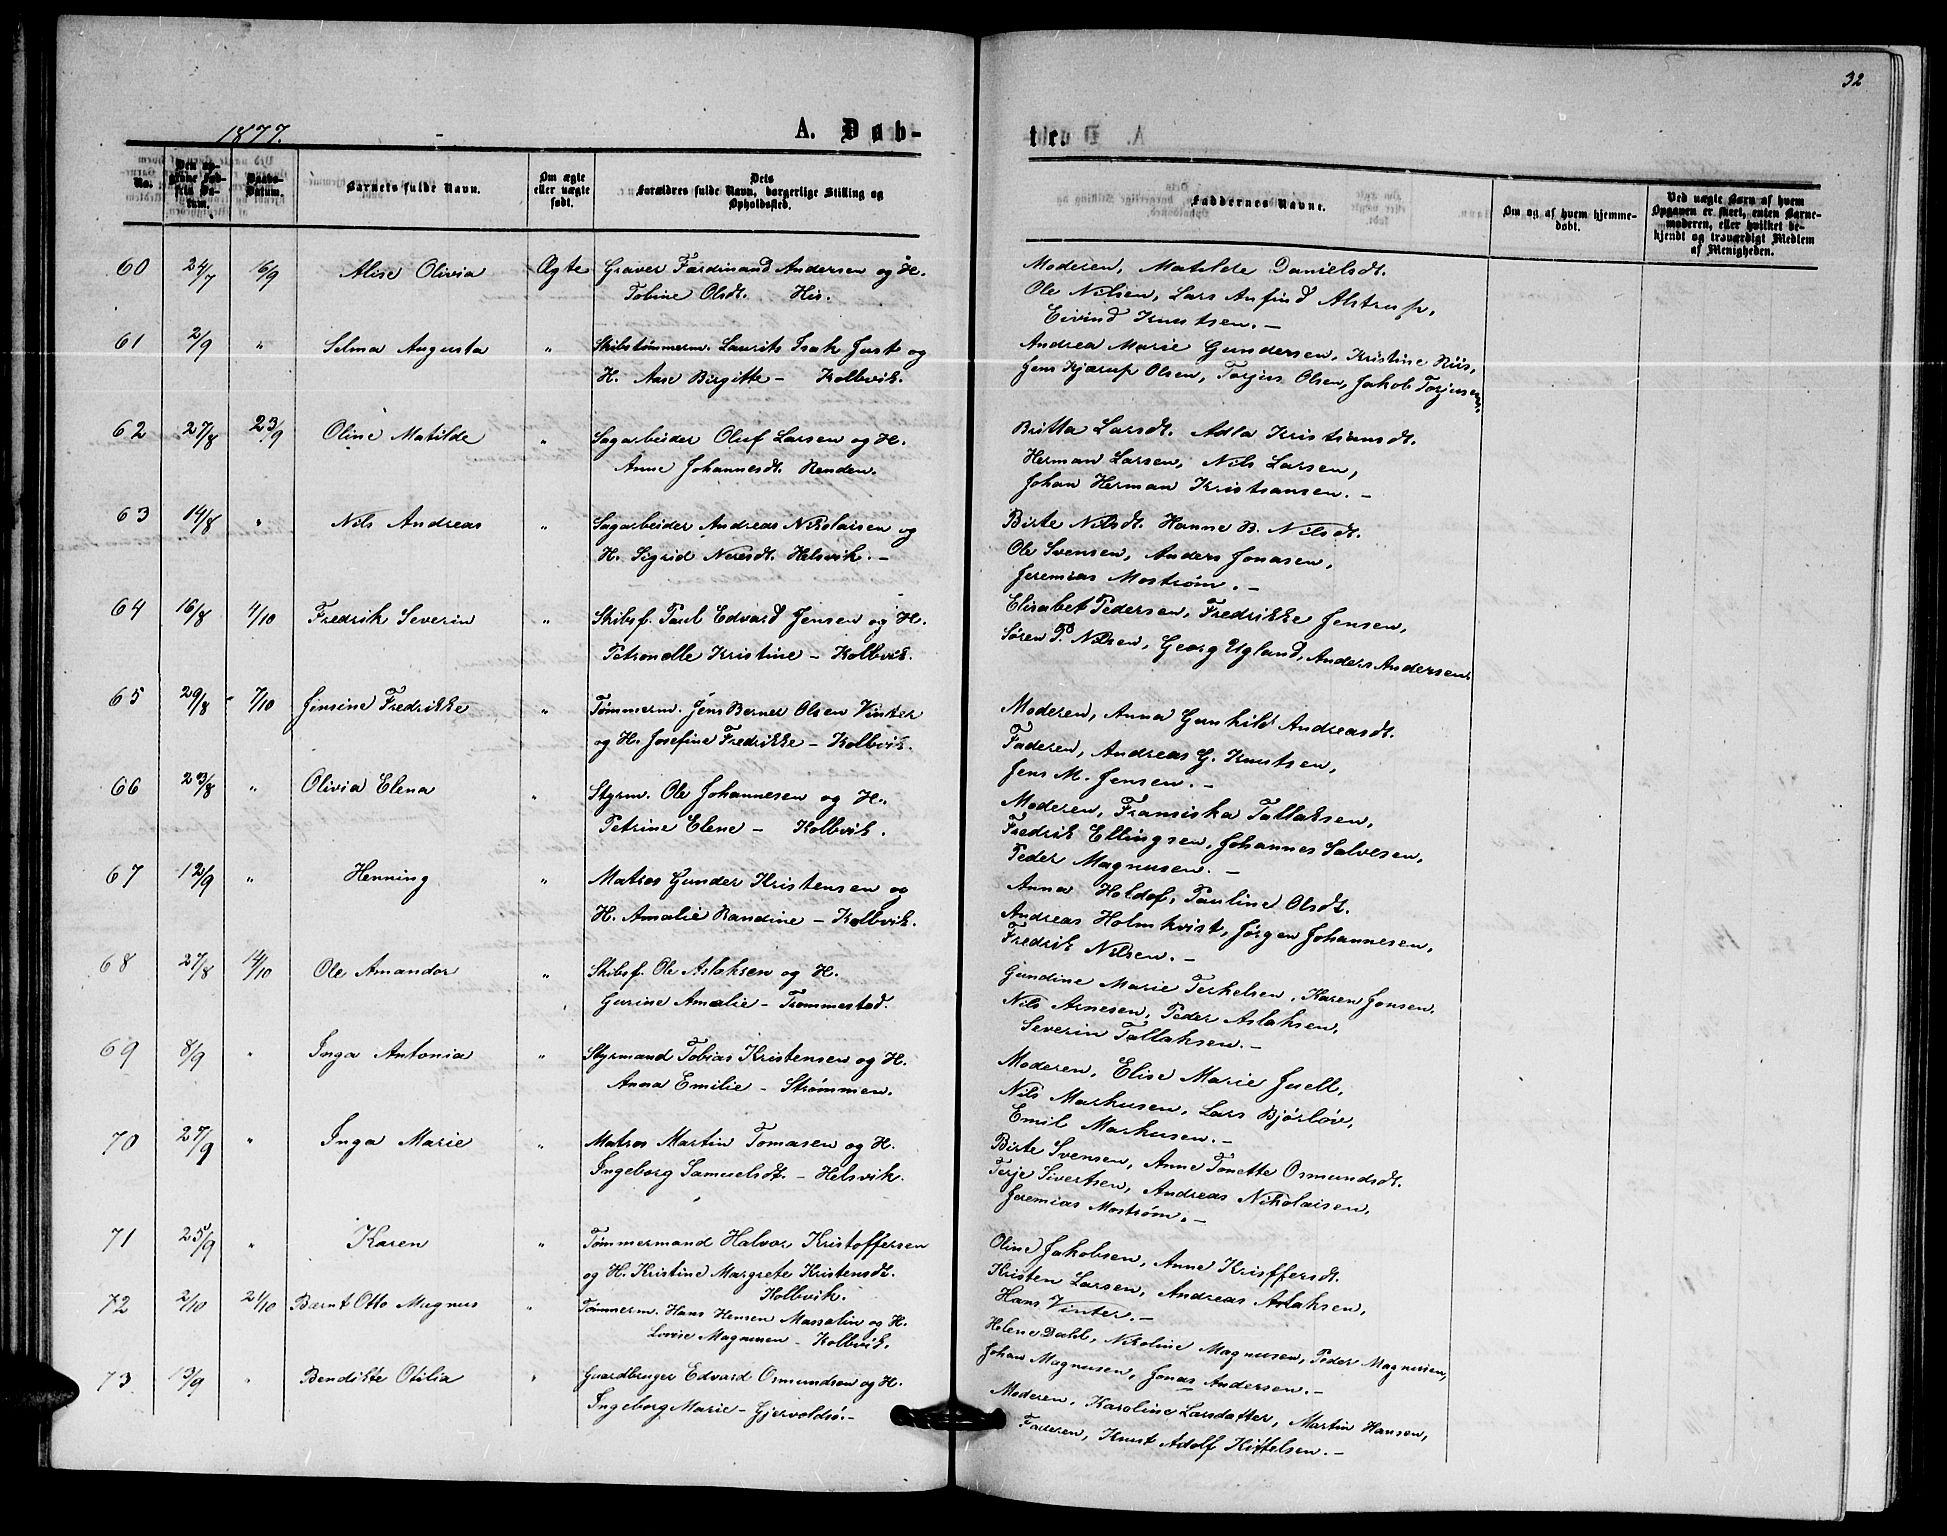 32
1877.
A. Døb-
te.
No.
Den op-
givne Fød-
sels Da-
tum.
Daabs-
Datum.
Barnets fulde Navn.
Om ægte
eller uægte
født.
Dets
Forældres fulde Navn, borgerlige Stilling og
Opholdssted.
Faddernes Navne.
Om og af hvem hjemme-
døbt.
Ved uægte Børn af hvem
Opgaven er skeet, enten Barne-
moderen, eller hvilket be-
kjendt og troværdigt Medlem
af Menigheden.
60 24/7 16/9 Alise Olivia Ægte Graver Ferdinand Andersen og H.
Tobine Olsdt. His.
Moderen, Matilde Danielsdt.
Ole Nilsen, Lars Anfind Alstrup,
Eivind Knutsen. -
61 2/9 " Selma Augusta " Skibstømmerm. Laurits Isak Just og
H. Aase Birgitte - Kolbvik.
Andrea Marie Gundersen, Kristine Riis,
Jens Kjærup Olsen, Torjus Olsen, Jakob Torjusen.
62 27/8 23/9 Oline Matilde " Sagarbeider Oluf Larsen og H.
Anne Johannesdt. Renden.
Britta Larsdt. Adla Kristiansdt.
Herman Larsen, Nils Larsen,
Johan Herman Kristiansen. -
63 14/8 " Nils Andreas " Sagarbeider Andreas Nikolaisen og
H. Sigrid Nilsdt. Helsvik. -
Birte Nilsdt. Hanne B. Nilsdt.
Ole Svensen, Anders Jonasen,
Jeremias Mostrøm. -
64 16/8 4/10 Fredrik Severin " Skibsf. Paul Edvard Jensen og H.
Petronelle Kristine - Kolbvik.
Elisabet Pedersen, Fredrikke Jensen,
Søren P. Nilsen, Georg Ugland, Anders Andersen.
65 29/8 7/10 Jensine Fredrikke " Tømmerm. Jens Berner Olsen Vinter
og H. Josefine Fredrikke - Kolbvik.
Moderen, Anna Gunhild Andreasdt.
Faderen, Andreas G. Knutsen,
Jens M. Jensen. -
66 23/8 " Olivia Elena " Styrm. Ole Johannesen og H.
Petrine Elene - Kolbvik.
Moderen, Fransiska Tallaksen,
Fredrik Ellingsen, Johannes Salvesen,
Peder Magnusen. -
67 12/9 " Henning " Matros Gunder Kristensen og
H. Amalie Randine - Kolbvik.
Anna Holdof, Pauline Olsdt.
Andreas Holmkvist, Jørgen Johannesen,
Fredrik Nilsen. -
68 27/8 14/10 Ole Amandor " Skibsf. Ole Aslaksen og H.
Gurine Amalie - Trommestad.
Gundine Marie Terkelsen, Karen Jonsen,
Nils Arnesen, Peder Aslaksen,
Severin Tallaksen. -
69 8/9 " Inga Antonia " Styrmand Tobias Kristensen og H.
Anna Emilie - Strømmen.
Moderen, Elise Marie Juell,
Nils Markusen, Lars Bjørløv,
Emil Markusen. -
70 27/9 " Inga Marie " Matros Martin Tomasen og H.
Ingeborg Samuelsdt. - Helsvik.
Birte Svensen, Anne Tonette Osmundsdt.
Terje Sivertsen, Andreas Nikolaisen,
Jeremias Mostrøm. -
71 25/9 " Karen " Tømmermand Halvor Kristoffersen
og H. Kristine Margrete Kristensdt.
Kolbvik.
Oline Jakobsen, Anne Kristffersdt.
Kristen Larsen, Andreas Aslaksen,
Hans Vinter. -
72 2/10 21/10 Bernt Otto Magnus " Tømmerm. Hans Hensen Massalin og H.
Lovise Magnusen - Kolbvik.
Helene Dahl, Nikoline Magnusen, Peder Magnusen,
Johan Magnusen, Jonas Andersen. -
73 13/9 " Bendikte Otilia " Guardbruger Edvard Osmundsen og H.
Ingeborg Marie - Gjervoldsø. -
Moderen, Karoline Larsdatter, Martin Hansen,
Faderen, Knut Adolf Kittelsen. -